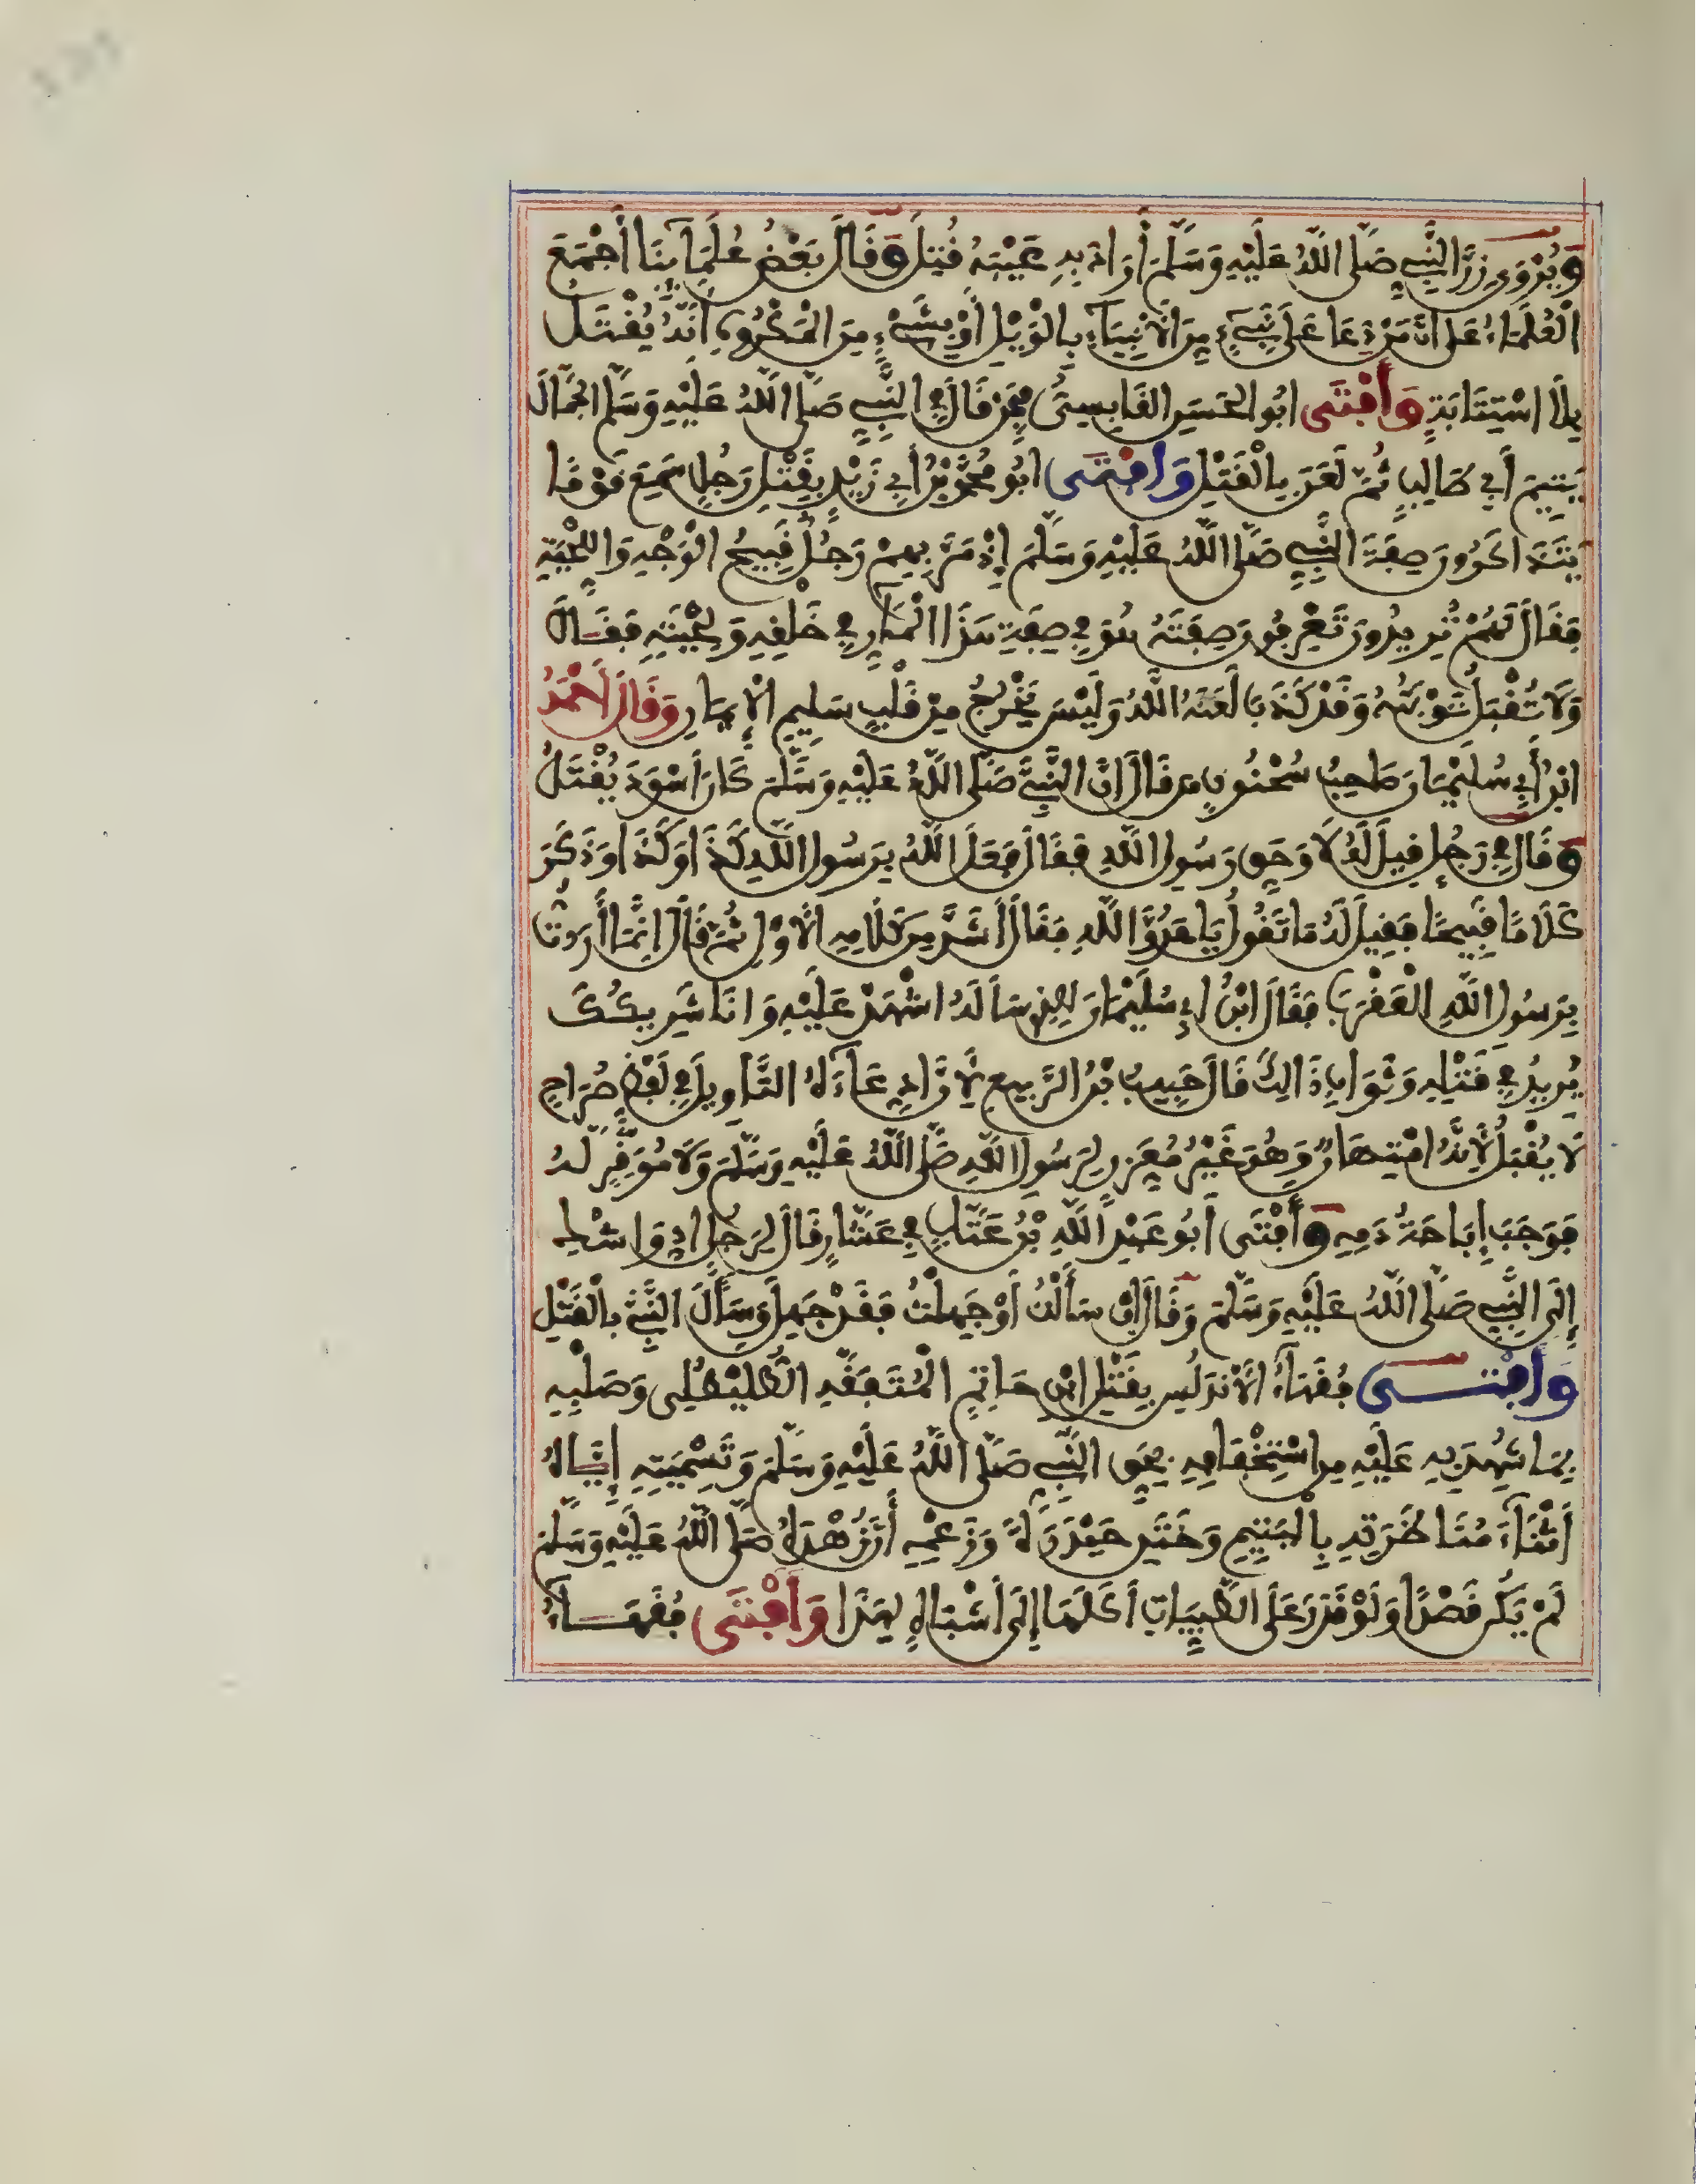 وَيُرْوَى زِرَّ النَّبِيِّ صَلَّى اللَّهُ عَلَيْهِ وَسَلَّمَ أَرَادَ بِهِ عَيْبَهُ قُتِلَ وَقَالَ بَعْضُ عُلَمَآئِنَا أَجْمَعَ
الْعُلَمَاءُ عَلَى أَنَّ مَنْ دَعَا عَلَى نَبِيٍّ مِنَ الْأَنْبِيَآءِ بِالْوَيْلِ أَوْ بِشَيْءٍ مِنَ الْمَكْرُوهِ أَنَّهُ يُقْتَلُ
بِلَا اسْتِتَابَةٍ وَأَفْتَى ابُو الْحَسَنِ الْقَابِسِيُّ فِيمَنْ قَالَ فِي النَّبِيِّ صَلَّى اللَّهُ عَلَيْهِ وَسَلَّمَ الْجَمَّالُ
يَتِيمُ أَبِي طَالِبٍ بِالْقَتْلِ وَافْتَى ابُو مُحَمَّدِ بْنُ أَبِي زَيْدٍ بِقَتْلِ رَجُلٍ سَمِعَ قَوْمًا
يَتَذَاكَرُونَ صِفَةَ النَّبِيِّ صَلَّى اللَّهُ عَلَيْهِ وَسَلَّمَ إِذْ مَرَّ بِهِمْ رَجُلٌ قَبِيحُ الْوَجْهِ وَاللِّحْيَةِ
فَقَالَ لَهُمْ تُرِيدُونَ تَعْرِفُونَ صِفَتَهُ هُوَ فِي صِفَةِ هَذَا الْمَارِّ فِي خَلْقِهِ وَلِحْيَتِهِ فَقَالَ
وَلَا تُقْبَلُ تَوْبَتُهُ وَقَدْ كَذَبَ لَعَنَهُ اللَّهُ وَلَيْسَ يَخْرُجُ مِنْ قَلْبٍ سَلِيمِ الْإِيمَانِ وَقَالَ أَحْمَدُ
ابْنُ أَبِي سُلَيْمَانَ صَاحِبُ سُحْنُونٍ مَنْ قَالَ إِنَّ النَّبِيَّ صَلَّى اللَّهُ عَلَيْهِ وَسَلَّمَ كَانَ أَسْوَدَ يُقْتَلُ
وَقَالَ فِي رَجُلٍ قِيلَ لَهُ لَا وَحَقِّ رَسُولِ اللَّهِ فَقَالَ فَعَلَ اللَّهُ بِرَسُولِ اللَّهِ كَذَا وَكَذَا وَذَكَرَ
كَلَامًا قَبِيحًا فَقِيلَ لَهُ مَا تَقُولُ يَا عَدُوَّ اللَّهِ فَقَالَ أَشَدَّ مِنْ كَلَامِهِ الْأَوَّلِ ثُمَّ قَالَ إِنَّمَا أَرَدْتُ
بِرَسُولِ اللَّهِ الْعَقْرَبَ فَقَالَ ابْنُ أَبِي سُلَيْمَانَ لِلَّذِي سَأَلَهُ اشْهَدْ عَلَيْهِ وَأَنَا شَرِيكُكَ
يُرِيدُ فِي قَتْلِهِ وَثَوَابِ ذَالِكَ قَالَ حَبِيبُ بْنُ الرَّبِيعِ لِأَنَّ ادِّعَآءَهُ التَّأْوِيلَ فِي لَفْظٍ صُرَاحٍ
لَا يُقْبَلُ لِأَنَّهُ امْتِهَانٌ وَهُوَ غَيْرُ مُعَزِّرٍ لِرَسُولِ اللَّهِ صَلَّى اللَّهُ عَلَيْهِ وَسَلَّمَ وَلَا مُوَقِّرٍ لَهُ
فَوَجَبَ إِبَاحَةُ دَمِهِ وَأَفْتَى أَبُو عَبْدِ اللَّهِ بْنُ عَتَّابٍ فِي عَشَّارٍ قَالَ لِرَجُلٍ أَدِّ وَاشْكُ
إِلَى النَّبِيِّ صَلَّى اللَّهُ عَلَيْهِ وَسَلَّمَ وَقَالَ إِنْ سَأَلْتُ أَوْ جَهِلْتُ فَقَدْ جَهِلَ وَسَأَلَ النَّبِيُّ بِالْقَتْلِ
وَأَفْتَى فُقَهَآءُ الْأَنْدَلُسِ بِقَتْلِ ابْنِ حَاتِمٍ الْمُتَفَقِّهِ الطُّلَيْطُلِي وَصَلْبِهِ
بِمَا شُهِدَ بِهِ عَلَيْهِ مِنِ اسْتِخْفَافِهِ بِحَقِّ النَّبِيِّ صَلَّى اللَّهُ عَلَيْهِ وَسَلَّمَ وَتَسْمِيَتِهِ إِيَّاهُ
أَثْنَآءَ مُنَاظَرَتِهِ بِالْيَتِيمِ وَخَتَنِ حَيْدَرَةَ وَزَعْمِهِ أَنَّ زُهْدَهُ صَلَّى اللَّهُ عَلَيْهِ وَسَلَّمَ
لَمْ يَكُنْ قَصْدًا وَلَوْ قَدَرَ عَلَى الطَّيِّبَاتِ أَكَلَهَا إِلَى أَشْبَاهٍ لِهَذَا وَأَفْتَى فُقَهَآءُ